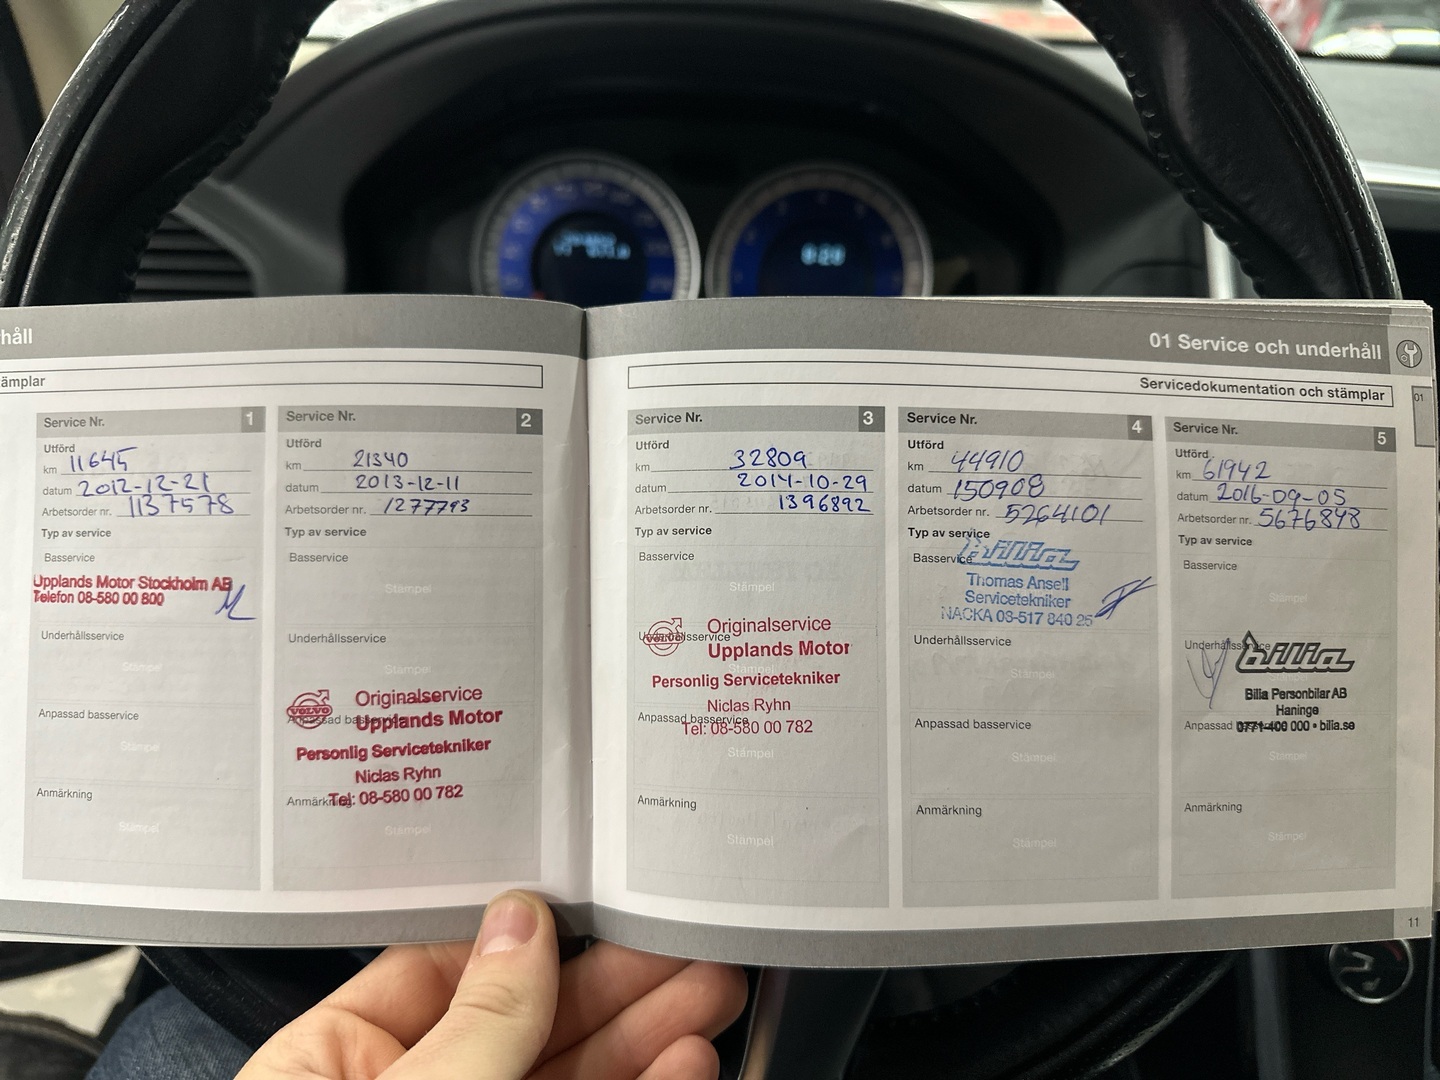 håll
ämplar
Service Nr. 1
Utförd
km 11645
datum 2012-12-21
Arbetsorder nr. 1137578
Typ av service
Basservice
Upplands Motor Stockholm AB
Telefon 08-580 00 800
Underhållsservice
Stämpel
Anpassad basservice
Stämpel
Anmärkning
Stämpel
Service Nr. 2
Utförd
km 21340
datum 2013-12-11
Arbetsorder nr. 1277793
Typ av service
Basservice
Stämpel
Underhållsservice
Stämpel
VOLVO
Originalservice
Anpassad basservice
Upplands Motor
Personlig Servicetekniker
Niclas Ryhn
Anmärkning
Tel: 08-580 00 782
Stämpel
01 Service och underhåll
Servicedokumentation och stämplar
01
Service Nr. 3
Utförd
km 32809
datum 2014-10-29
Arbetsorder nr. 1396892
Typ av service
Basservice
Stämpel
Originalservice
Underhållsservice
VOLVO
Upplands Motor
Stämpel
Personlig Servicetekniker
Niclas Ryhn
Anpassad basservice
Tel: 08-580 00 782
Stämpel
Anmärkning
Stämpel
Service Nr. 4
Utförd
km 44910
datum 150908
Arbetsorder nr. 5264101
Typ av service
Basservice
bilia
Thomas Ansell
Servicetekniker
NACKA 08-517 840 25
Underhållsservice
Stämpel
Anpassad basservice
Stämpel
Anmärkning
Stämpel
Service Nr. 5
Utförd
km 61942
datum 2016-09-05
Arbetsorder nr. 5676848
Typ av service
Basservice
Stämpel
Underhållsservice
bilia
Bilia Personbilar AB
Haninge
Anpassad
0771-400 000 • bilia.se
Anmärkning
Stämpel
11